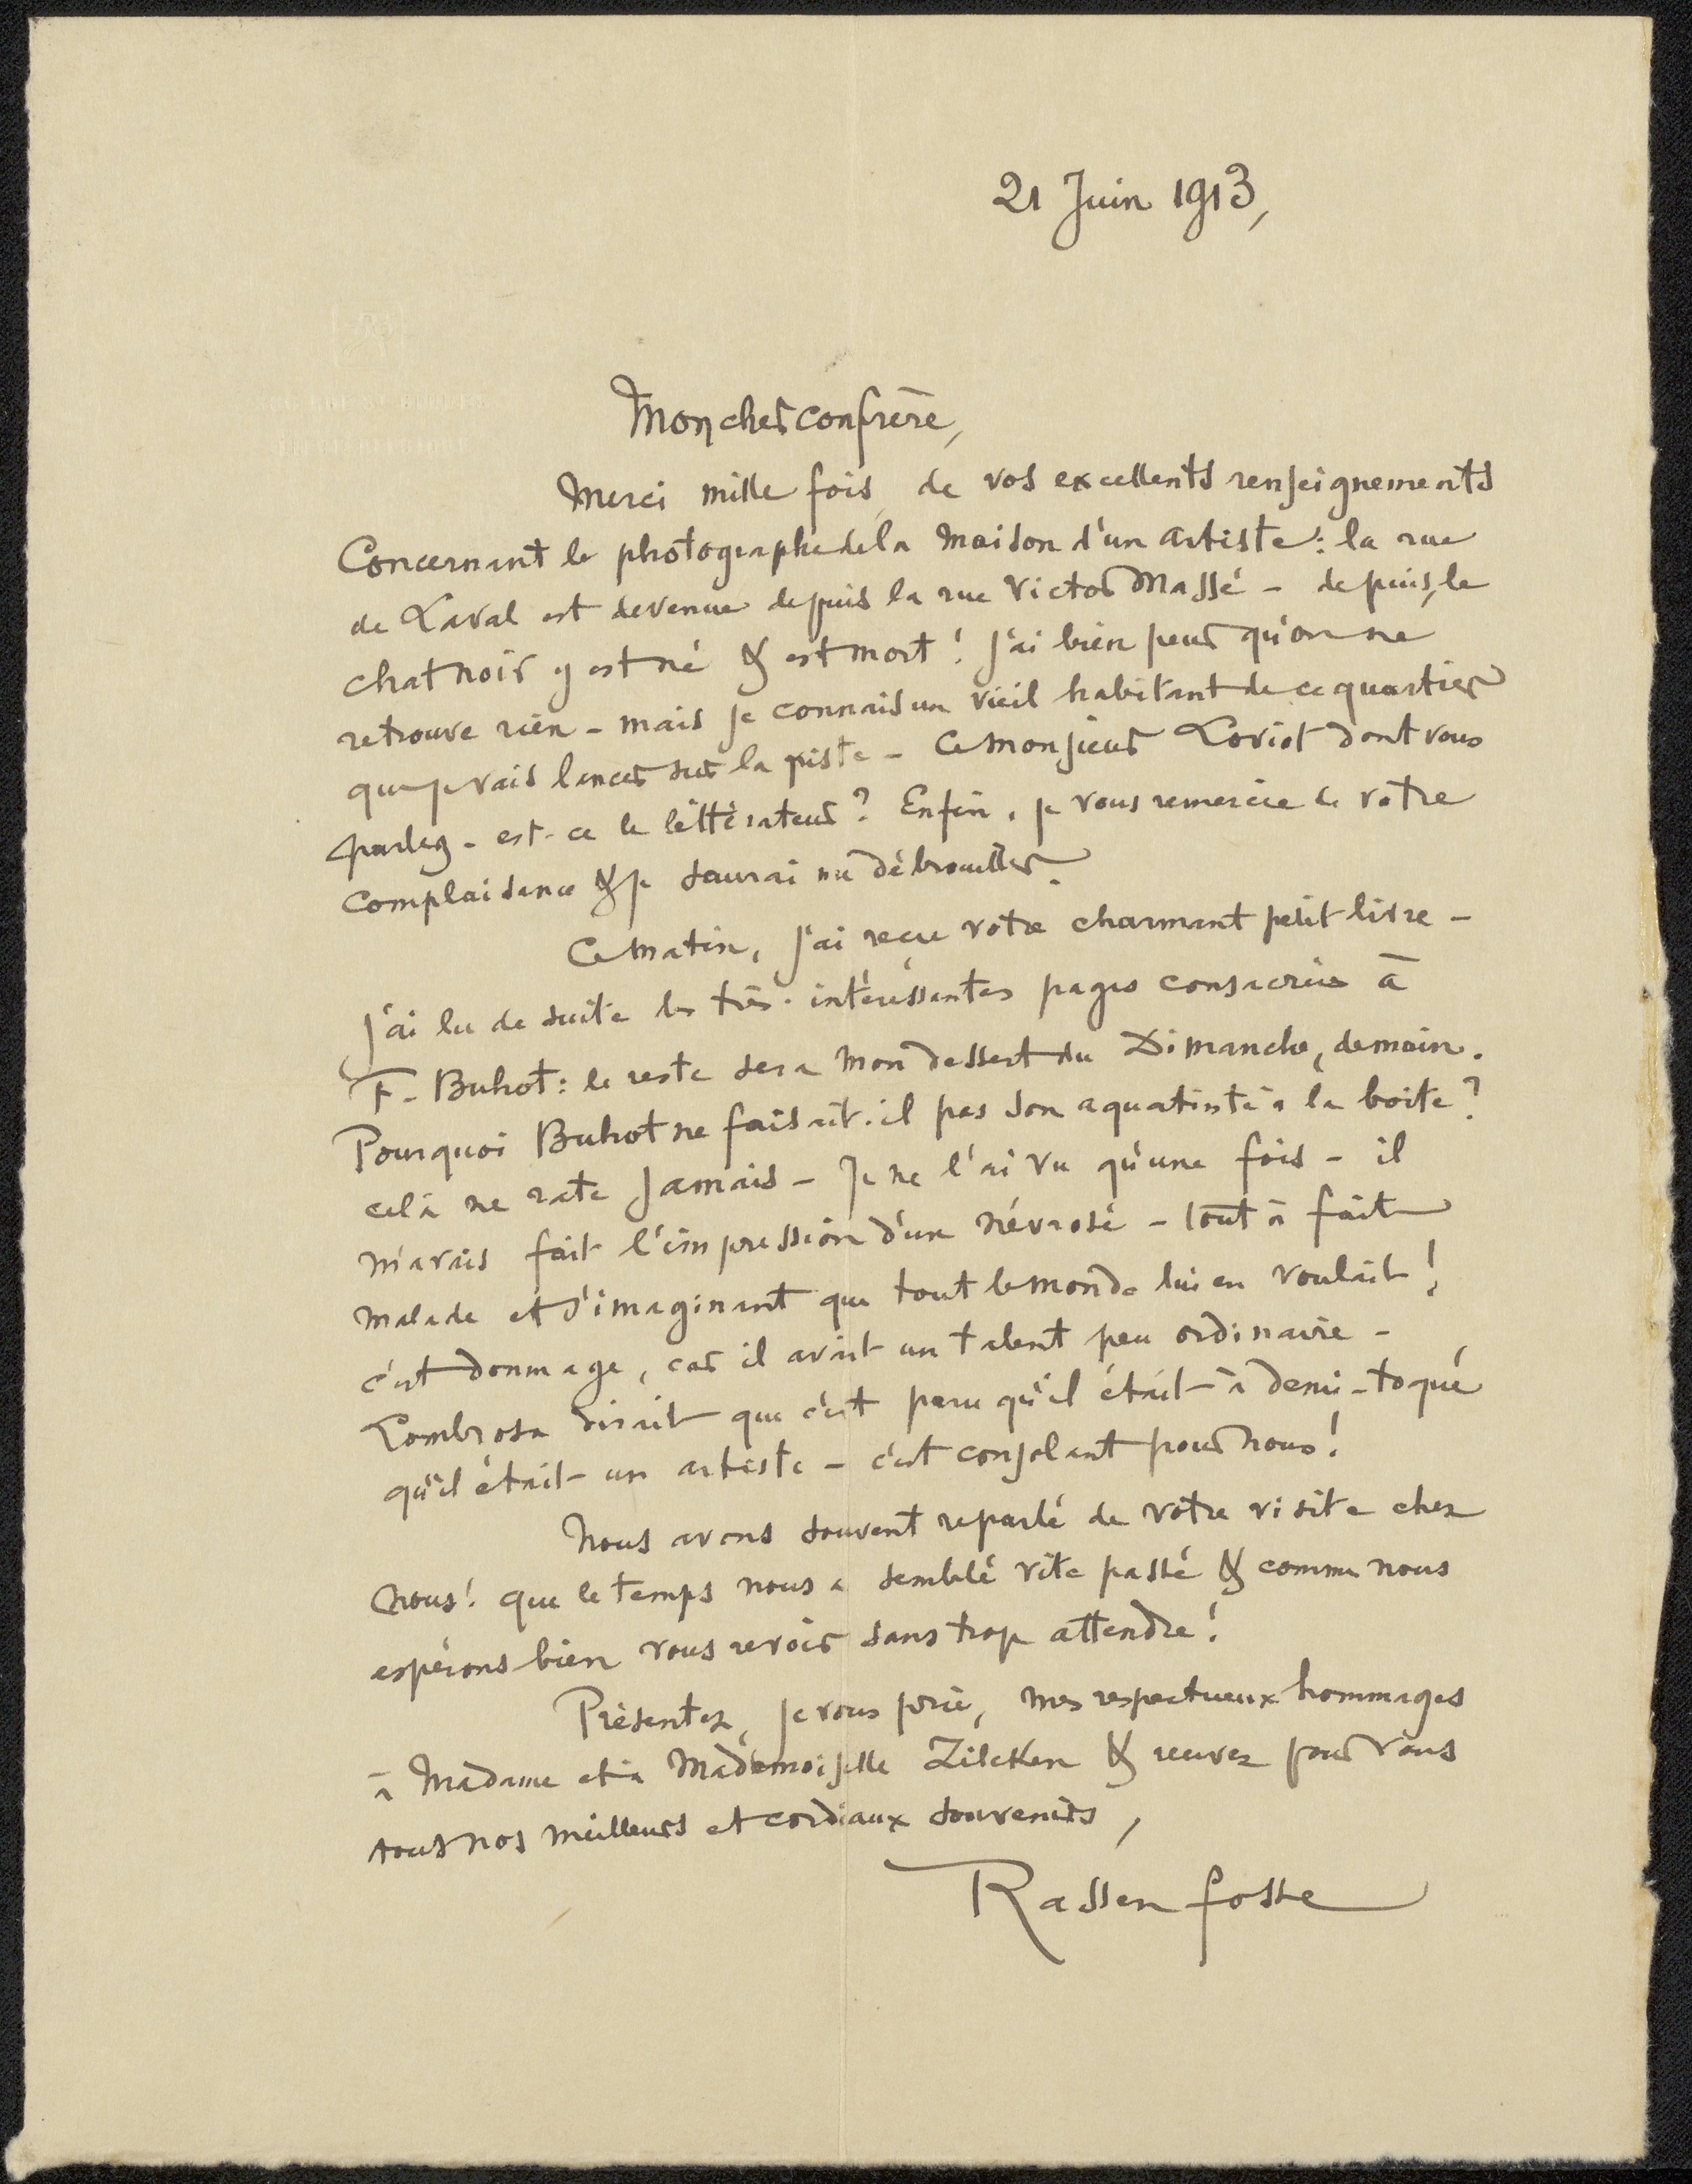 21 Juin 1913,
Mon cher confrère,
Merci mille fois, de vos excellents renseignements
Concernant le photographe de la Maison d'un artiste : la rue
de Laval est devenue depuis la rue Victor Massé - depuis, le
chat noir y est né & est mort ! J'ai bien peur qu'on ne
retrouve rien - mais je connais un vieil habitant de ce quartier
que je vais lancer sur la piste - Ce Monsieur Loriot dont vous
parlez - est-ce le littérateur ? Enfin, je vous remercie de votre
complaisance & je saurai me débrouiller.
Ce matin, j'ai reçu votre charmant petit livre -
J'ai lu de suite les très-intéressantes pages consacrées à
F. Buhot : le reste sera mon dessert du Dimanche, demain.
Pourquoi Buhot ne faisait-il pas son aquatinte à la boite ?
celà ne rate jamais - Je ne l'ai vu qu'une fois - il
m'avais fait l'impression d'un névrosé - tout à fait
malade et s'imaginant que tout le monde lui en voulait !
c'est dommage, car il avait un talent peu ordinaire -
Lombroso dirait que c'est parce qu'il était à demi-toqué
qu'il était un artiste - c'est consolant pour nous !
Nous avons souvent reparlé de votre visite chez
nous ! que le temps nous a semblé vite passé & comme nous
espérons bien vous revoir sans trop attendre !
Présentez, je vous prie, mes respectueux hommages
à Madame et à Mademoiselle Zilcken & recevez pour vous
tous nos meilleurs et cordiaux souvenirs,
Rassenfosse